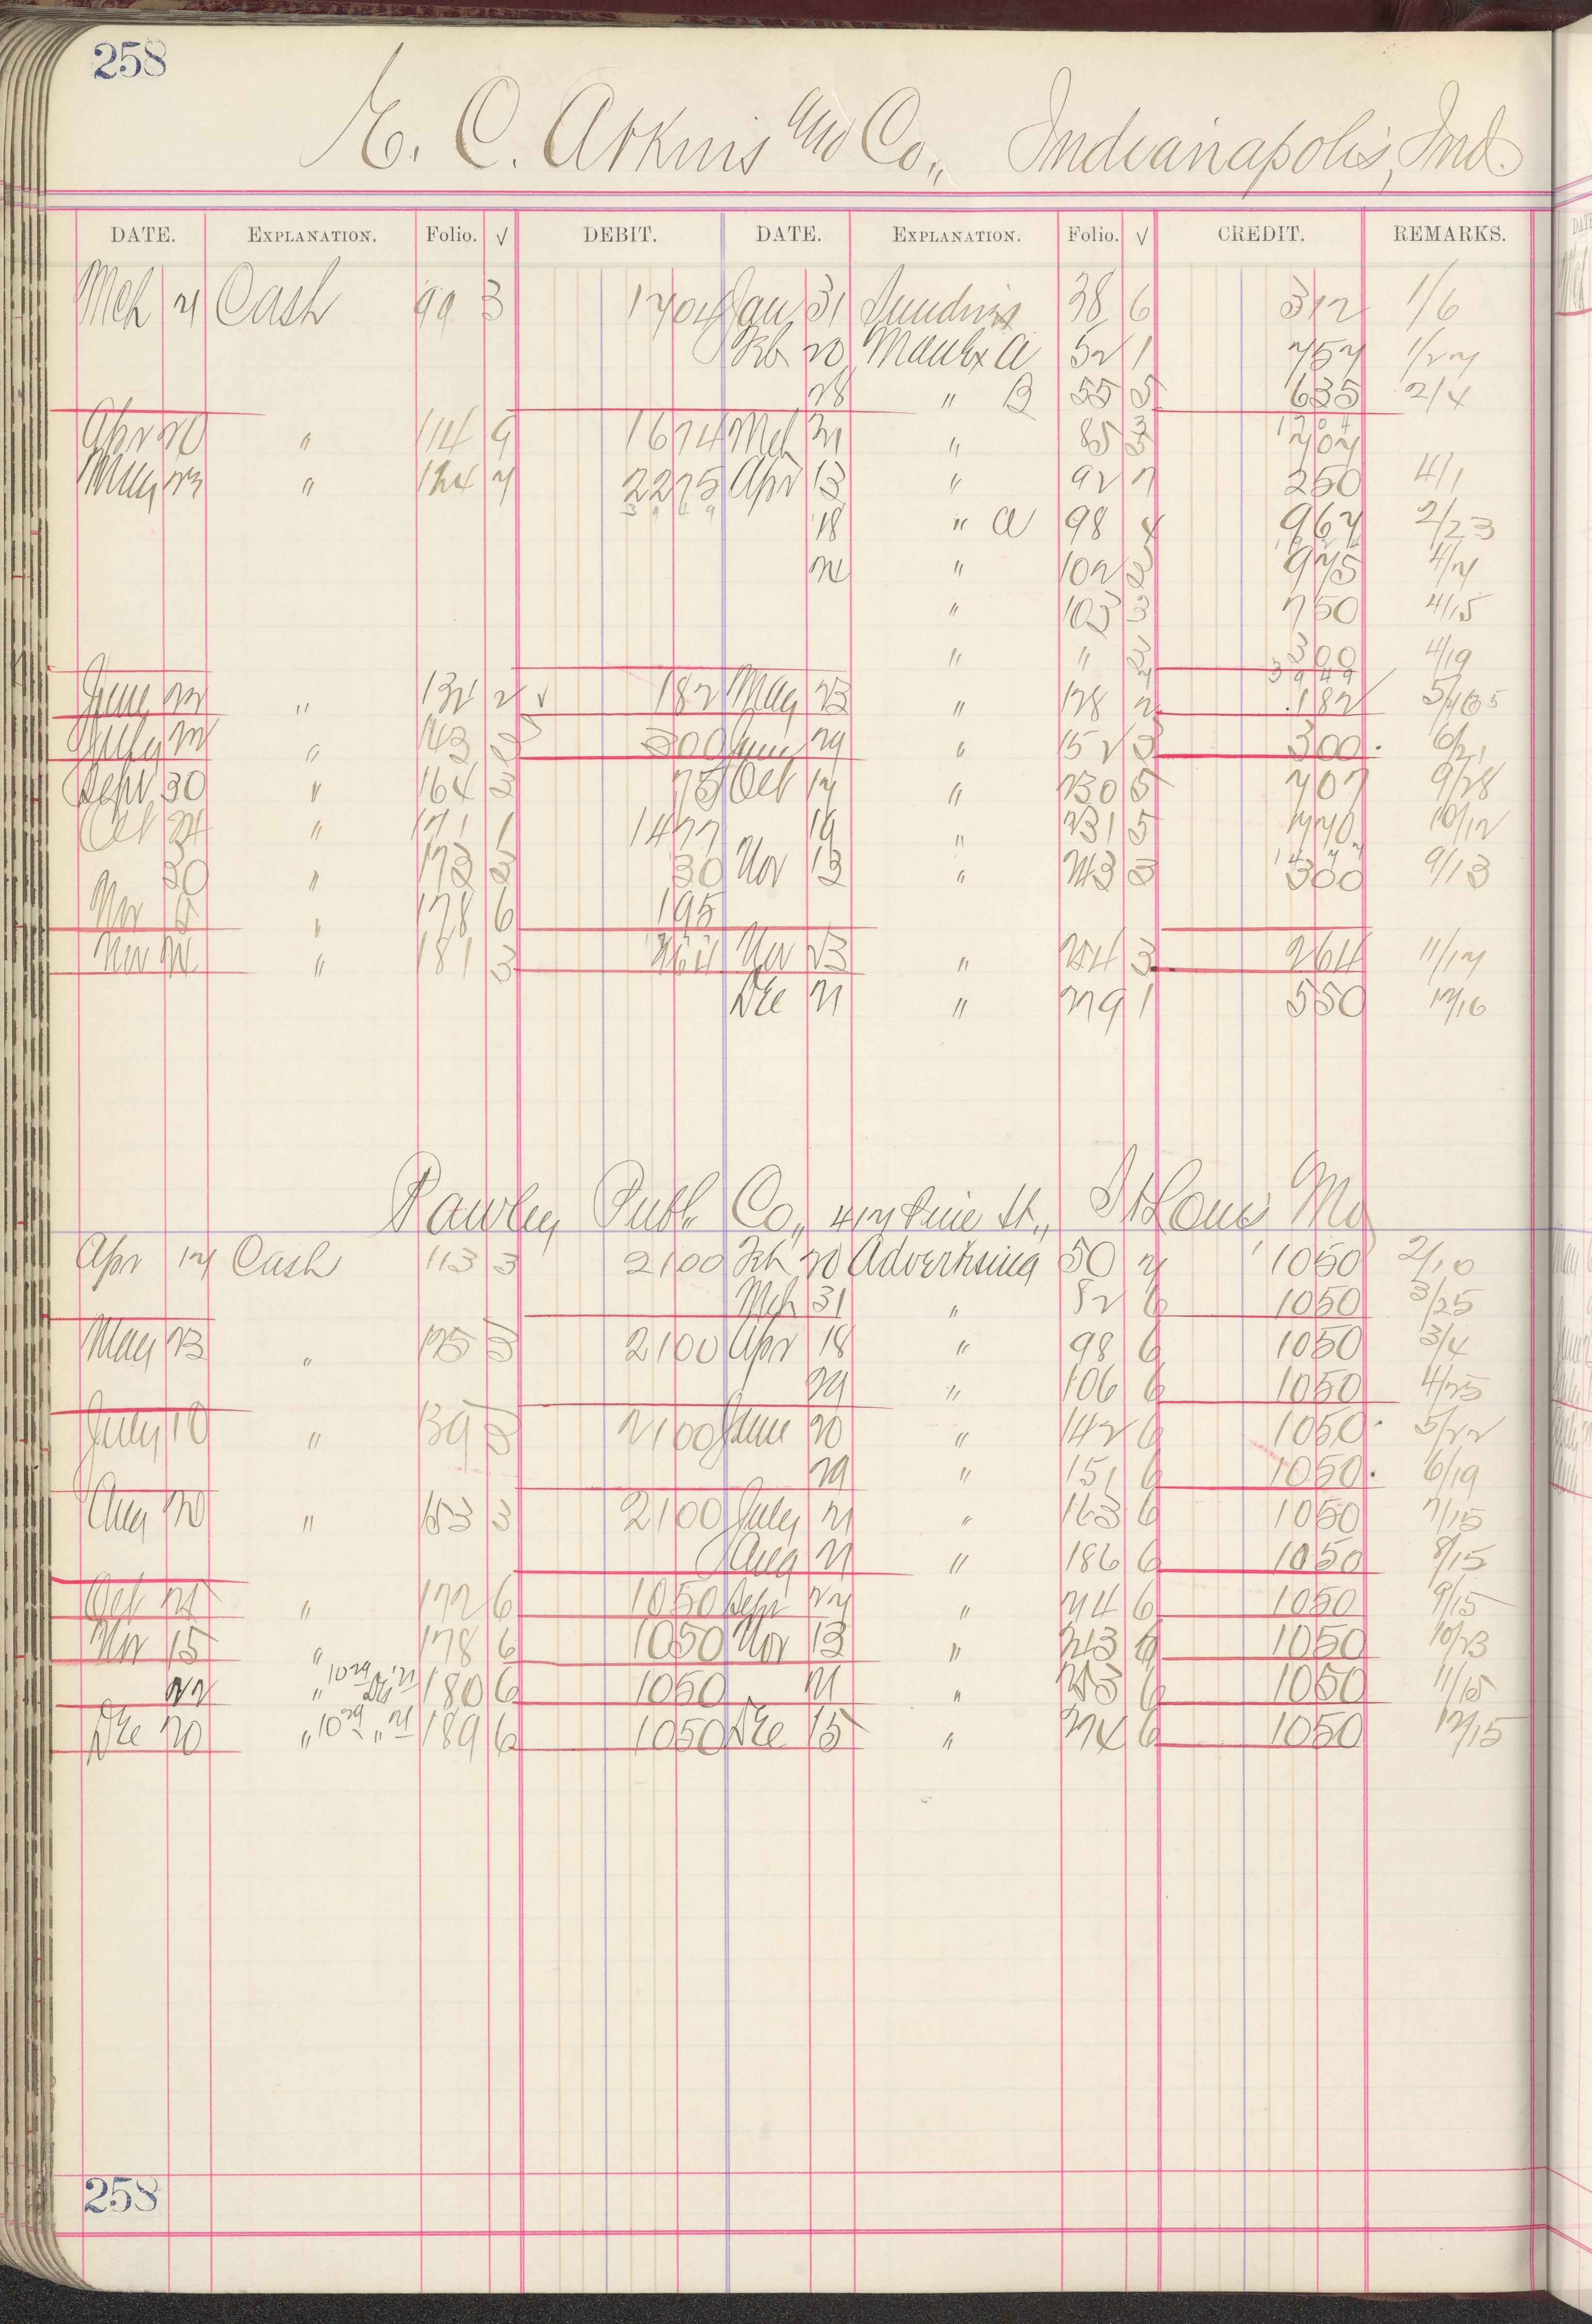 258
E. C. Atkins and Co., Indianapolis, Ind.
DATE. EXPLANATION. Folio. √ DEBIT. DATE. EXPLANATION. Folio. √ CREDIT. REMARKS.
Mch 21 Cash 99 3 1704 Jan 31 Sundries 38 6 312 1/6
Feb 20 Mdse A 52 1 757 1/27
28 " B 55 5 635 2/4
1704
Apr 20 " 114 9 1674 Mch 21 " 85 3
May 23 " 124 7 2275 Apr 13 " 92 7 250 4/1
3949
18 " A 98 4 967 2/23
" 102 2 975 4/7
" 103 3 750 4/15
" " 2 300 4/19
3949
June 22 " 132 2 √ 182 May 23 " 128 2 182
July 21 " 143 300 June 29 " 152 3 300
Sept 30 " 164 2 75 Oct 17 " 230 5 707 9/28
Oct 21 " 171 1 1477 19 " 231 5 770 10/12
1477
30 " 173 3 30 Nov 13 " 243 3 300 9/13
Nov " 178 6 195
Nov 21 " 181 3 264 Nov 23 " 254 3 264 11/17
Dec 21 " 279 1 550 12/16
Rawley Publ. Co., 417 Pine St., St Louis Mo
Apr 17 Cash 113 3 2100 Feb 20 Advertising 50 2 1050 2/10
Mch 31 " 82 6 1050 3/25
May 23 " 125 3 2100 Apr 18 " 98 6 1050 3/4
29 " 106 6 1050 4/25
July 10 " 139 3 2100 June 20 " 142 6 1050 5/22
29 " 151 6 1050 6/19
Aug 20 " 153 3 2100 July 21 " 163 6 1050 7/15
Aug 21 " 186 6 1050 8/15
Oct 21 " 172 6 1050 Sept 27 " 214 6 1050 9/15
Nov 15 " 178 6 1050 Nov 13 " 243 6 1050 10/23
22 " 180 6 1050 21 " 253 6 1050 11/15
Dec 20 " 189 6 1050 Dec 15 " 274 6 1050 12/15
258